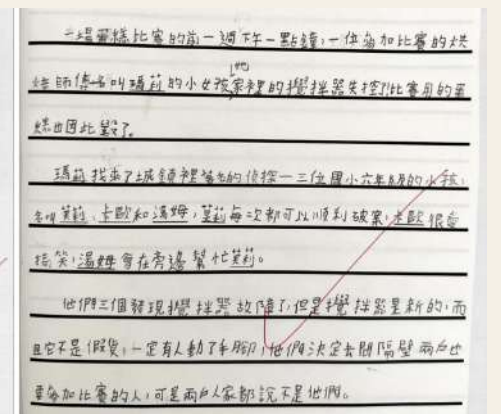 一場蛋糕比賽的前一週下午一點鐘,一位參加比賽的烘
焙師傅名叫瑪莉的小女孩,她家裡的攪拌器失控了!比賽用的蛋
糕也因此毀了。
瑪莉找來了城鎮裡著名的偵探—三位國小六年級的小孩,
名叫茉莉、卡歐和湯姆,茉莉每次都可以順利破案,卡歐很愛
搞笑,湯姆會在旁邊幫忙茉莉。
他們三個發現攪拌器故障了,但是攪拌器是新的,而
且它不是假貨,一定有人動了手腳,他們決定去問隔壁兩戶也
要參加比賽的人,可是兩戶人家都說不是他們。